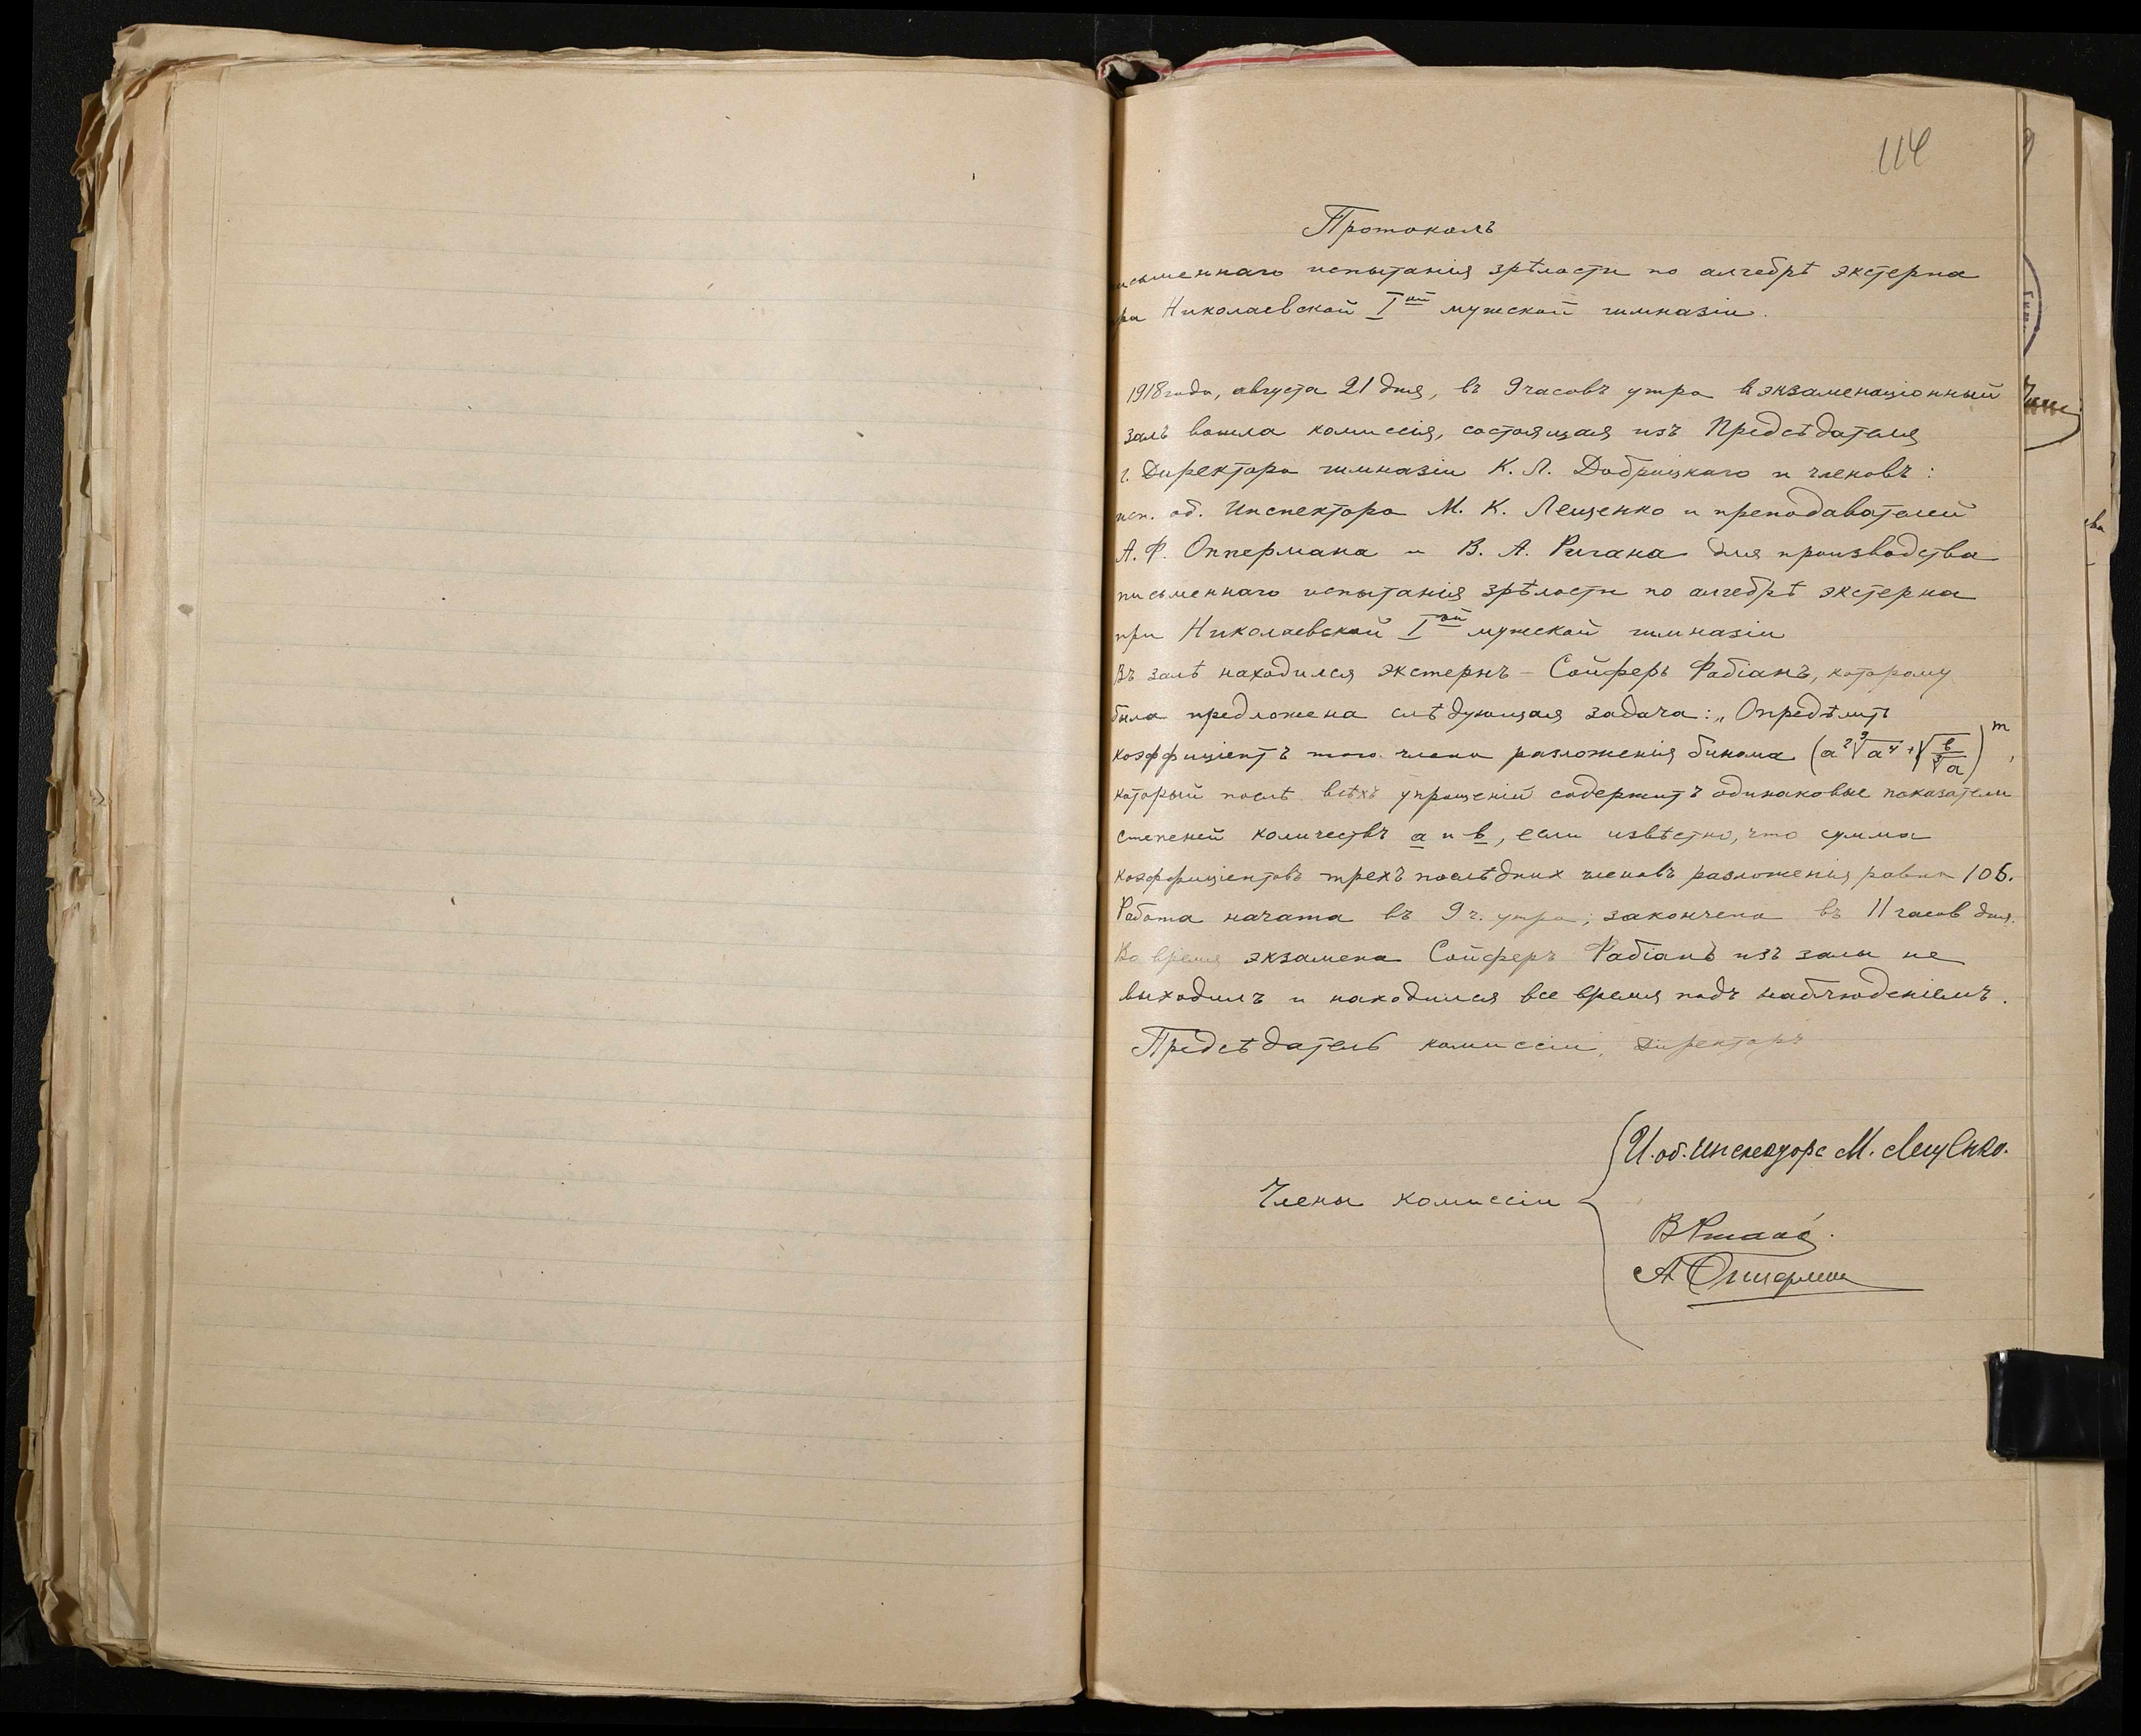 114
Протоколъ
письменнаго испытанія зрѣлости по алгебрѣ экстерна
при Николаевской Iой мужской гимназіи.
1918 года, августа 21 дня, въ 9 часовъ утра въ экзаменаціонный
залъ вошла комиссія, состоящая изъ Предсѣдателя
г. Директора гимназіи К. Л. Добрицкаго и членовъ:
исп. об. Инспектора М. К. Лещенко и преподавателей
А. Ф. Оппермана и В. А. Ригана для производства
письменнаго испытанія зрѣлости по алгебрѣ экстерна
при Николаевской Iой мужской гимназіи
Въ залѣ находился экстернъ – Сойферъ Фабіанъ, которому
была предложена слѣдующая задача: „Опредѣлить
коэффиціентъ того члена разложенія бинома (a²∛a⁴ + √(в/∛a))^m,
который послѣ всѣхъ упрощеній содержитъ одинаковые показатели
степеней количествъ a и в, если извѣстно, что сумма
коэффиціентовъ трехъ послѣднихъ членовъ разложенія равна 106.
Работа начата въ 9 ч. утра; закончена въ 11 часов дня.
Во время экзамена Сойферъ Фабіанъ изъ залы не
выходилъ и находился все время подъ наблюденіемъ.
Предсѣдатель комиссіи, Директоръ
И. об. Инспектора М. Лещенко.
Члены комиссіи
А Опперман